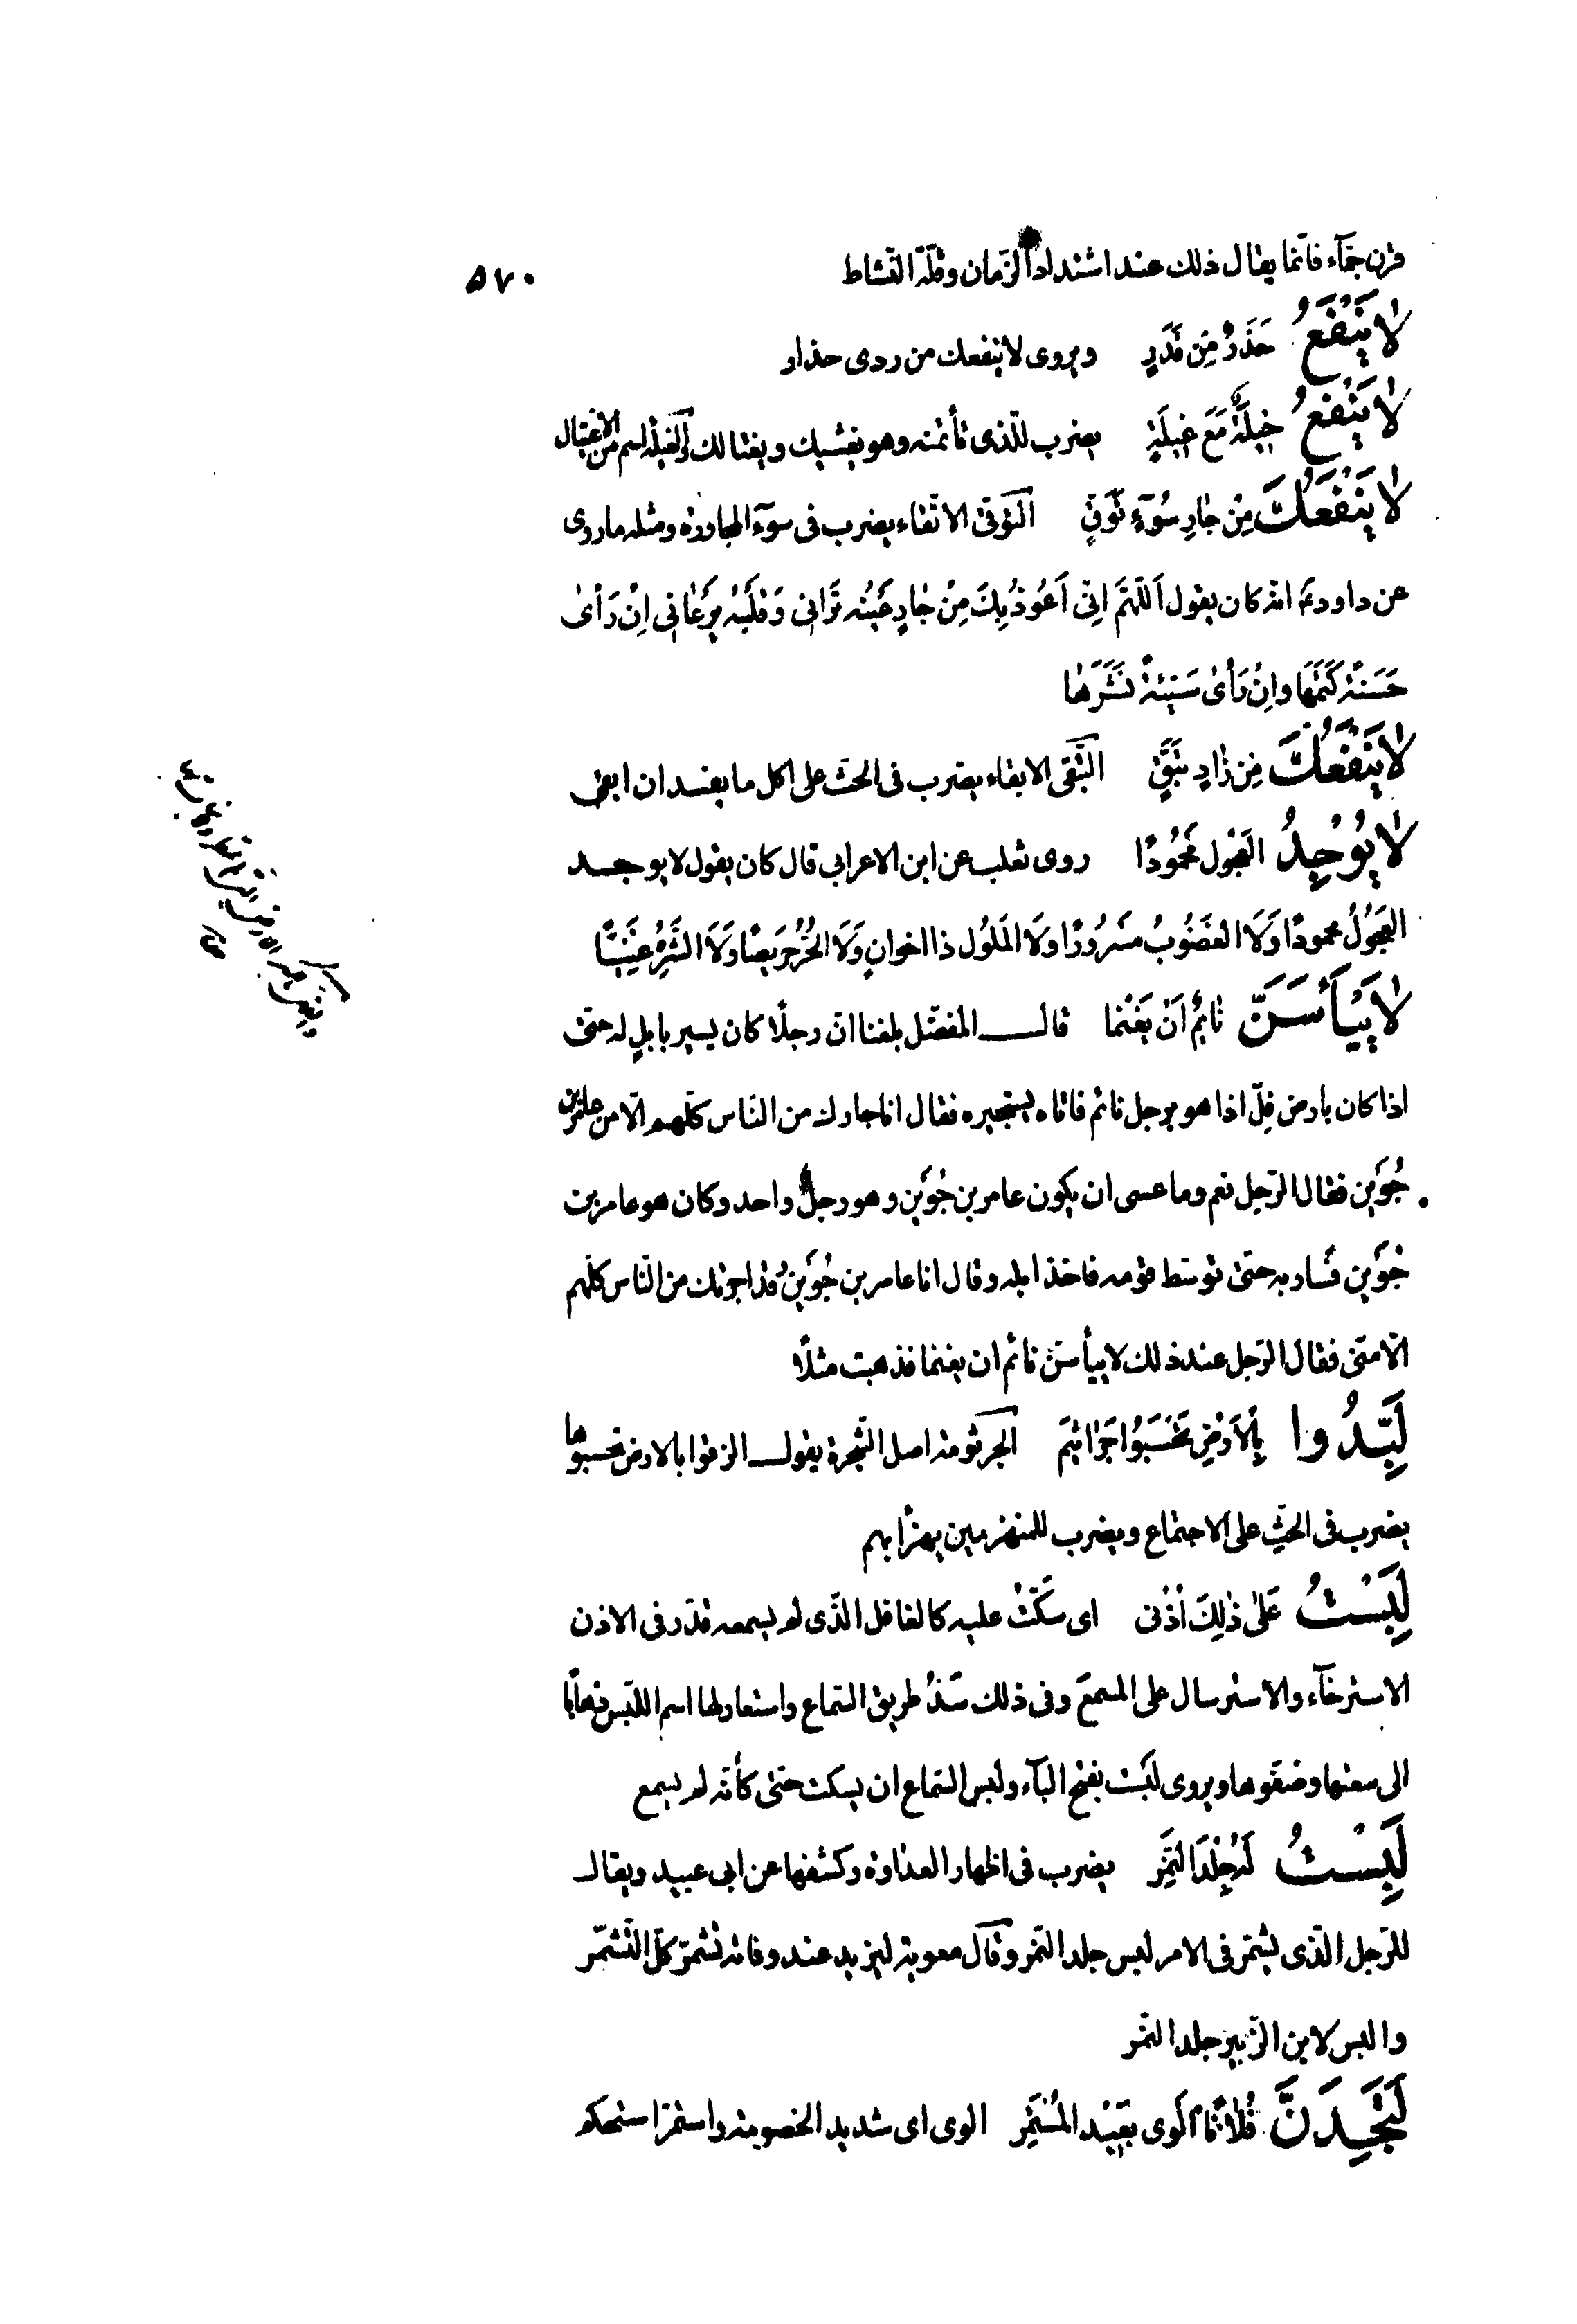 ۵۷۰
قرن جمّآء فانّما يقال ذلك عند اشتداد الزّمان وقلّة النّشاط
لا يَنْفَعُ حَذَرٌ مِنْ قَدَرٍ ويروى لا ينفعك من ردى حذار
لا يَنْفَعُ حِيلَةٌ مَعَ غِيلَةٍ يضرب للّذى تأتمنه وهو يغشّك ويغتالك والغيلة اسم من الاغتيال
لا يَنْفَعُكَ مِنْ جارِ سُوْءٍ تَوَقٍّ التّوقّى الاتّقاء يضرب فى سوء المجاورة ومثله ماروى
عن داود ع انّه كان يقول اَللّهُمَّ اِنّى اَعُوذُ بِكَ مِنْ جارٍ عَيْنُه تَرانى وَقَلْبُهُ يَرْعانى اِنْ رَأى
حَسَنَةً كَتَمَهَا وانْ رَأى سَيّئةً نَشَرَها
لا يَنْفَعُكَ مِنْ زادٍ تَبَقٍّ التّبقّى الابقاء يضرب فى الحثّ على اكل ما يفسد ان ابقى
لا يُوْجَدُ العَجُول مَحْمُودًا روى ثعلب عن ابن الاعرابى قال كان يقول لا يوجد
العَجُولُ محمودًا وَلَا الغَضُوبُ مَسْرُورًا ولَا المَلُول ذا اخوانٍ وَلَا الحُرُّ حَرِيصًا وَلَا الشَّرِهُ غَنِيًّا
لا يَيْأَسَنَّ نائِمٌ اَنْ يَغْنَما قال المفضّل بلغنا انّ رجلًا كان يسير بابلٍ له حتّى
اذا كان بارض فِلّ اذا هو برجل نائم فاتاه يستجيره فقال انا جارك من النّاس كلّهم الّا من عامر بن
جُوَيْن فقال الرّجل نعم وما عسى ان يكون عامر بن جُوَيْن وهو رجلٌ واحد وكان هو عامر بن
جُوَيْن فسار به حتّى توسّط قومه فاخذ ابله وقال انا عامر بن جُوَيْن وقد اجرتك من النّاس كلّهم
الّا منّى فقال الرّجل عند ذلك لا ييأسنّ نائم ان يغنما فذهبت مثلًا
لَبِّدُوا بِالْاَرْضِ تُحْسَبُوا جَراثِيمَ الجرثومة اصل الشّجرة يقول الزقوا بالارض تحسبوها
يضرب فى الحثّ على الاجتماع ويضرب للمنهزمين يهزأ بهم
لَبِسْتُ عَلى ذٰلِكَ اُذُنى اى سكتّ عليه كالغافل الّذى لم يسمعه قدّر فى الاذن
الاسترخآء والاسترسال على المسمع وفى ذلك سَدُّ طريق السّماع واستعار لها اسم اللّبس ذهابًا
الى سعتها وضفوها ويروى لبَست بفتح البآء ولبس السّماع ان يسكت حتّى كأنّه لم يسمع
لَبِسْتُ لَهُ جِلْدَ النَّمِرِ يضرب فى اظهار العداوة وكشفها عن ابى عبيد ويقال
للرّجل الّذى يشمّر فى الامر لبس جلد النّمر وقال معوية ليزيد عند وفاته تشمّر كلّ التّشمّر
والبس لابن الزّبير جلد النّمر
لَتَجِدَنَّ فُلانًا اَلْوى بَعِيْدَ المُسْتَمَرِّ الوى اى شديد الخصومة واستمرّ استحكم